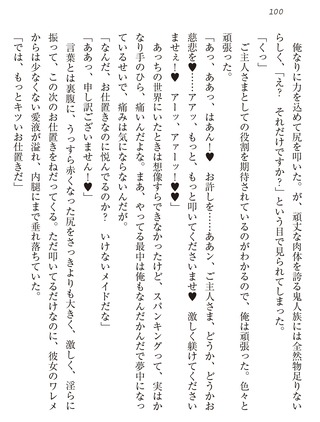 100
俺なりに力を込めて尻を叩いた。が、頑丈な肉体を誇る鬼人族には全然物足りない
らしく、「え？　それだけですか？」という目で見られてしまった。
「くっ」
ご主人さまとしての役割を期待されているのがわかるので、俺は頑張った。色々と
頑張った。
「あっ、ああっ、はあん！♥　お許しを……ああン、ご主人さま、どうか、どうかお
慈悲を♥……アアッ、もっと、もっと叩いてくださいませ♥　激しく躾けてください
ませぇ！♥　アーッ、アァーッ！♥♥」
あっちの世界にいたときは想像すらできなかったけど、スパンキングって、実はか
なり手のひら、痛いんだよな。まあ、やってる最中は俺もなんだかんだで夢中になっ
ているせいで、痛みは気にならないんだが。
「なんだ、お仕置きなのに悦んでるのか？　いけないメイドだな」
「ああっ、申し訳ございません！♥」
言葉とは裏腹に、うっすら赤くなった尻をさっきよりも大きく、激しく、淫らに
振って、この次のお仕置きをねだってくる。ただ叩いてるだけなのに、彼女のワレメ
からは少なくない愛液が溢れ、内腿にまで垂れ落ちていた。
「では、もっとキツいお仕置きだ」